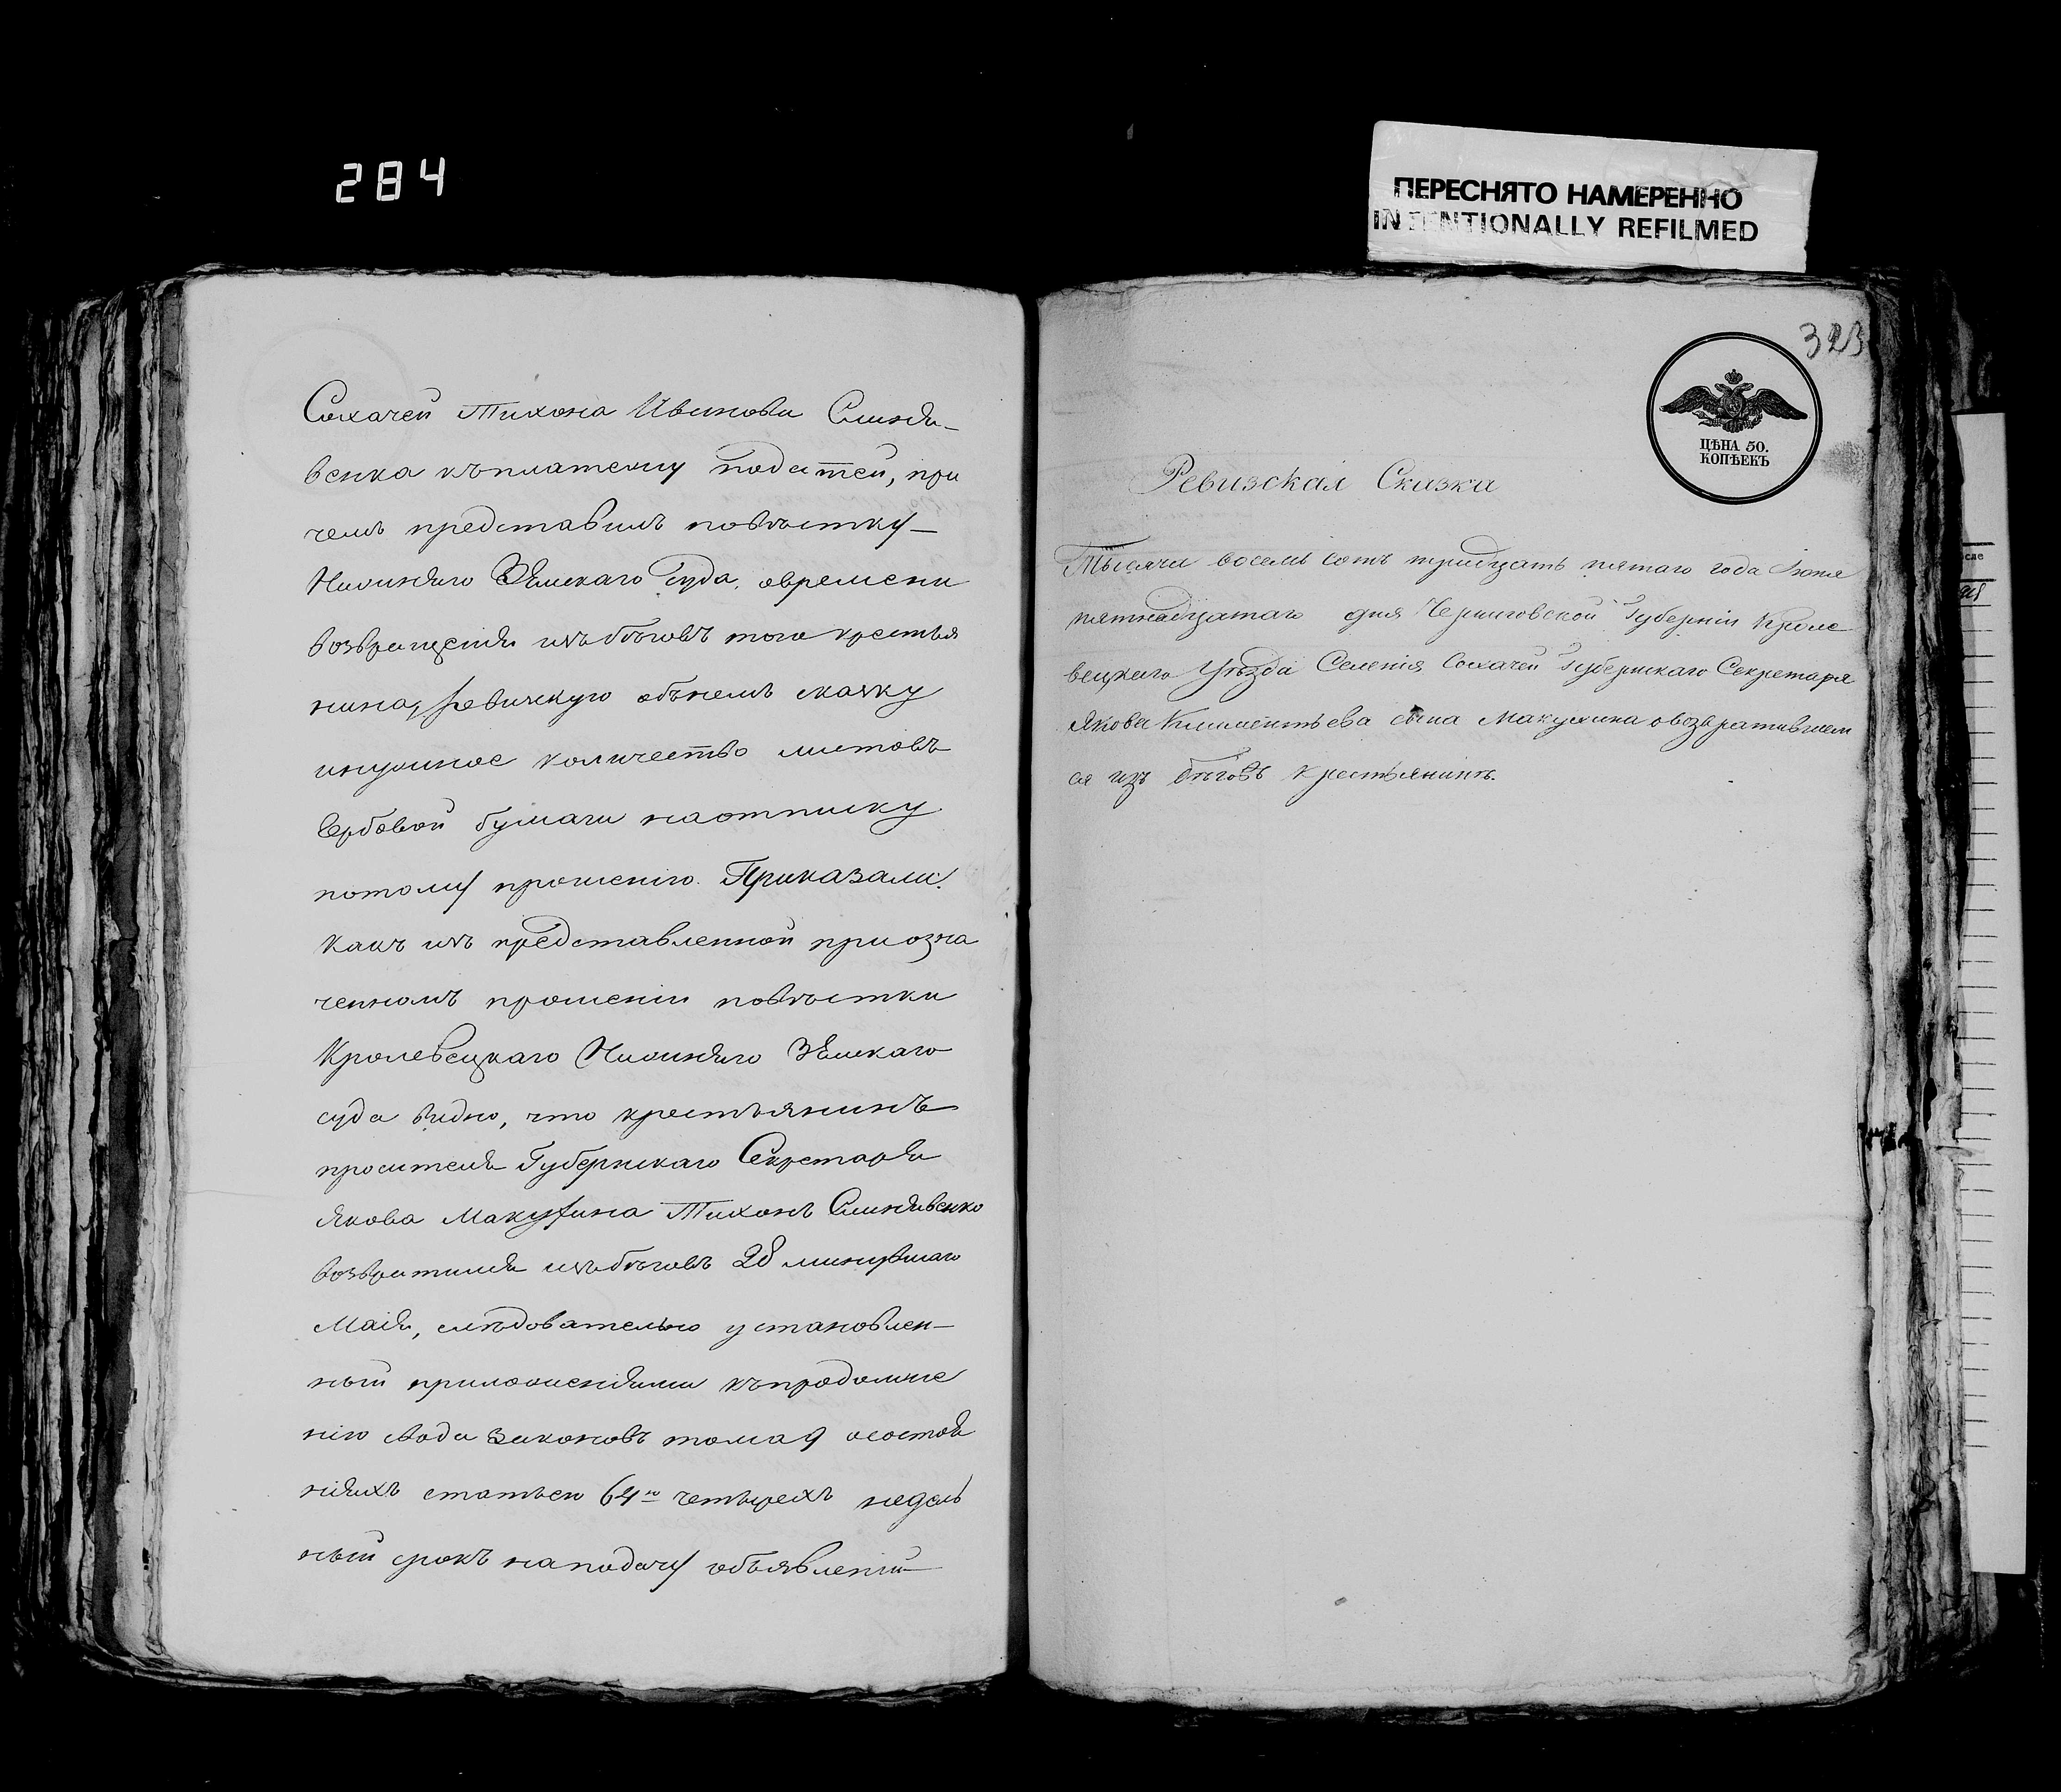 284
ПЕРЕСНЯТО НАМЕРЕННО
INTENTIONALLY REFILMED
Сохачей Тихона Иванова Слиня-
венка къплатежу податей, при
чемъ представилъ повѣстку
Нижняго Земскаго Суда, овремени
возвращенія изъбѣговъ того крестья
нина, ревизскую обънемъ сказку
инужное количество листовъ
Гербовой бумаги наотписку
потому прошенію. Приказали:
какъ изъ представленной приозна
ченномъ прошеніи повѣстки
Кролевецкаго Нижняго Земскаго
суда видно, что крестьянинъ
просителя Губернскаго Секретаря
Якова Макухина Тихонъ Слинявенко
возвратился изъбѣговъ 28 минувшаго
Маія, слѣдовательно установлен-
ный приложеніями къпродолже
нію свода законовъ тома 9 осостоя
ніяхъ статьею 64ю четырехъ недель
ный срокъ наподачу объявленій
323
ЦѢНА 50.
КОПѢЕКЪ
Ревизская Сказка
Тысяча восемь сотъ тридцать пятаго года Іюня
пятнадцатаго дня Черниговской Губерніи Кроле
вецкаго Уѣзда Селенія Сохачей Губернскаго Секретаря
Якова Климентьева сына Макухина овозвратившем
ся изъ бѣговъ крестьянинѣ.